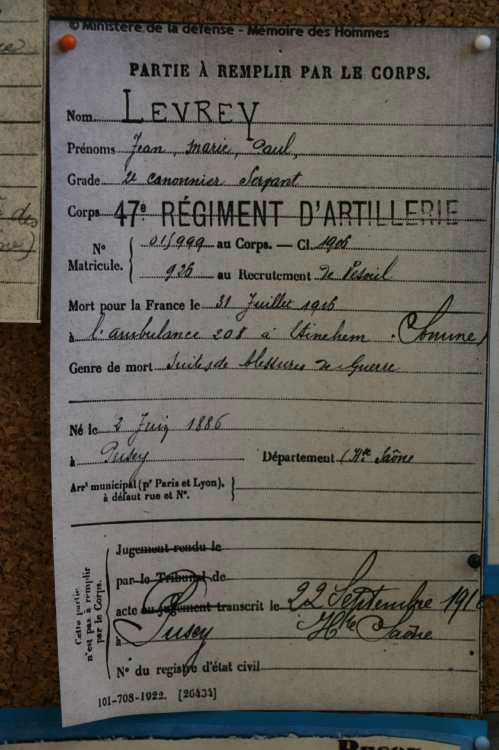 © Ministère de la défense - Mémoire des Hommes
PARTIE À REMPLIR PAR LE CORPS.
Nom LEVREY
Prénoms Jean, Marie, Paul,
Grade 2e canonnier Servant
Corps 47e RÉGIMENT D'ARTILLERIE
N° Matricule. { 01/999 au Corps. — Cl. 1906
926 au Recrutement de Vesoul
Mort pour la France le 31 Juillet 1916
à l'ambulance 208 à Etinehem (Somme)
Genre de mort Suites de blessures de Guerre
Né le 2 Juin 1886
à Pusey Département (Hte Saône
Arrt municipal (pr Paris et Lyon), à défaut rue et N°. }
Cette partie n'est pas à remplir par le Corps.
Jugement rendu le
par le Tribunal de
acte ou jugement transcrit le 22 Septembre 191
à Pusey Hte Saône
N° du registre d'état civil
101-708-1922. [26434]